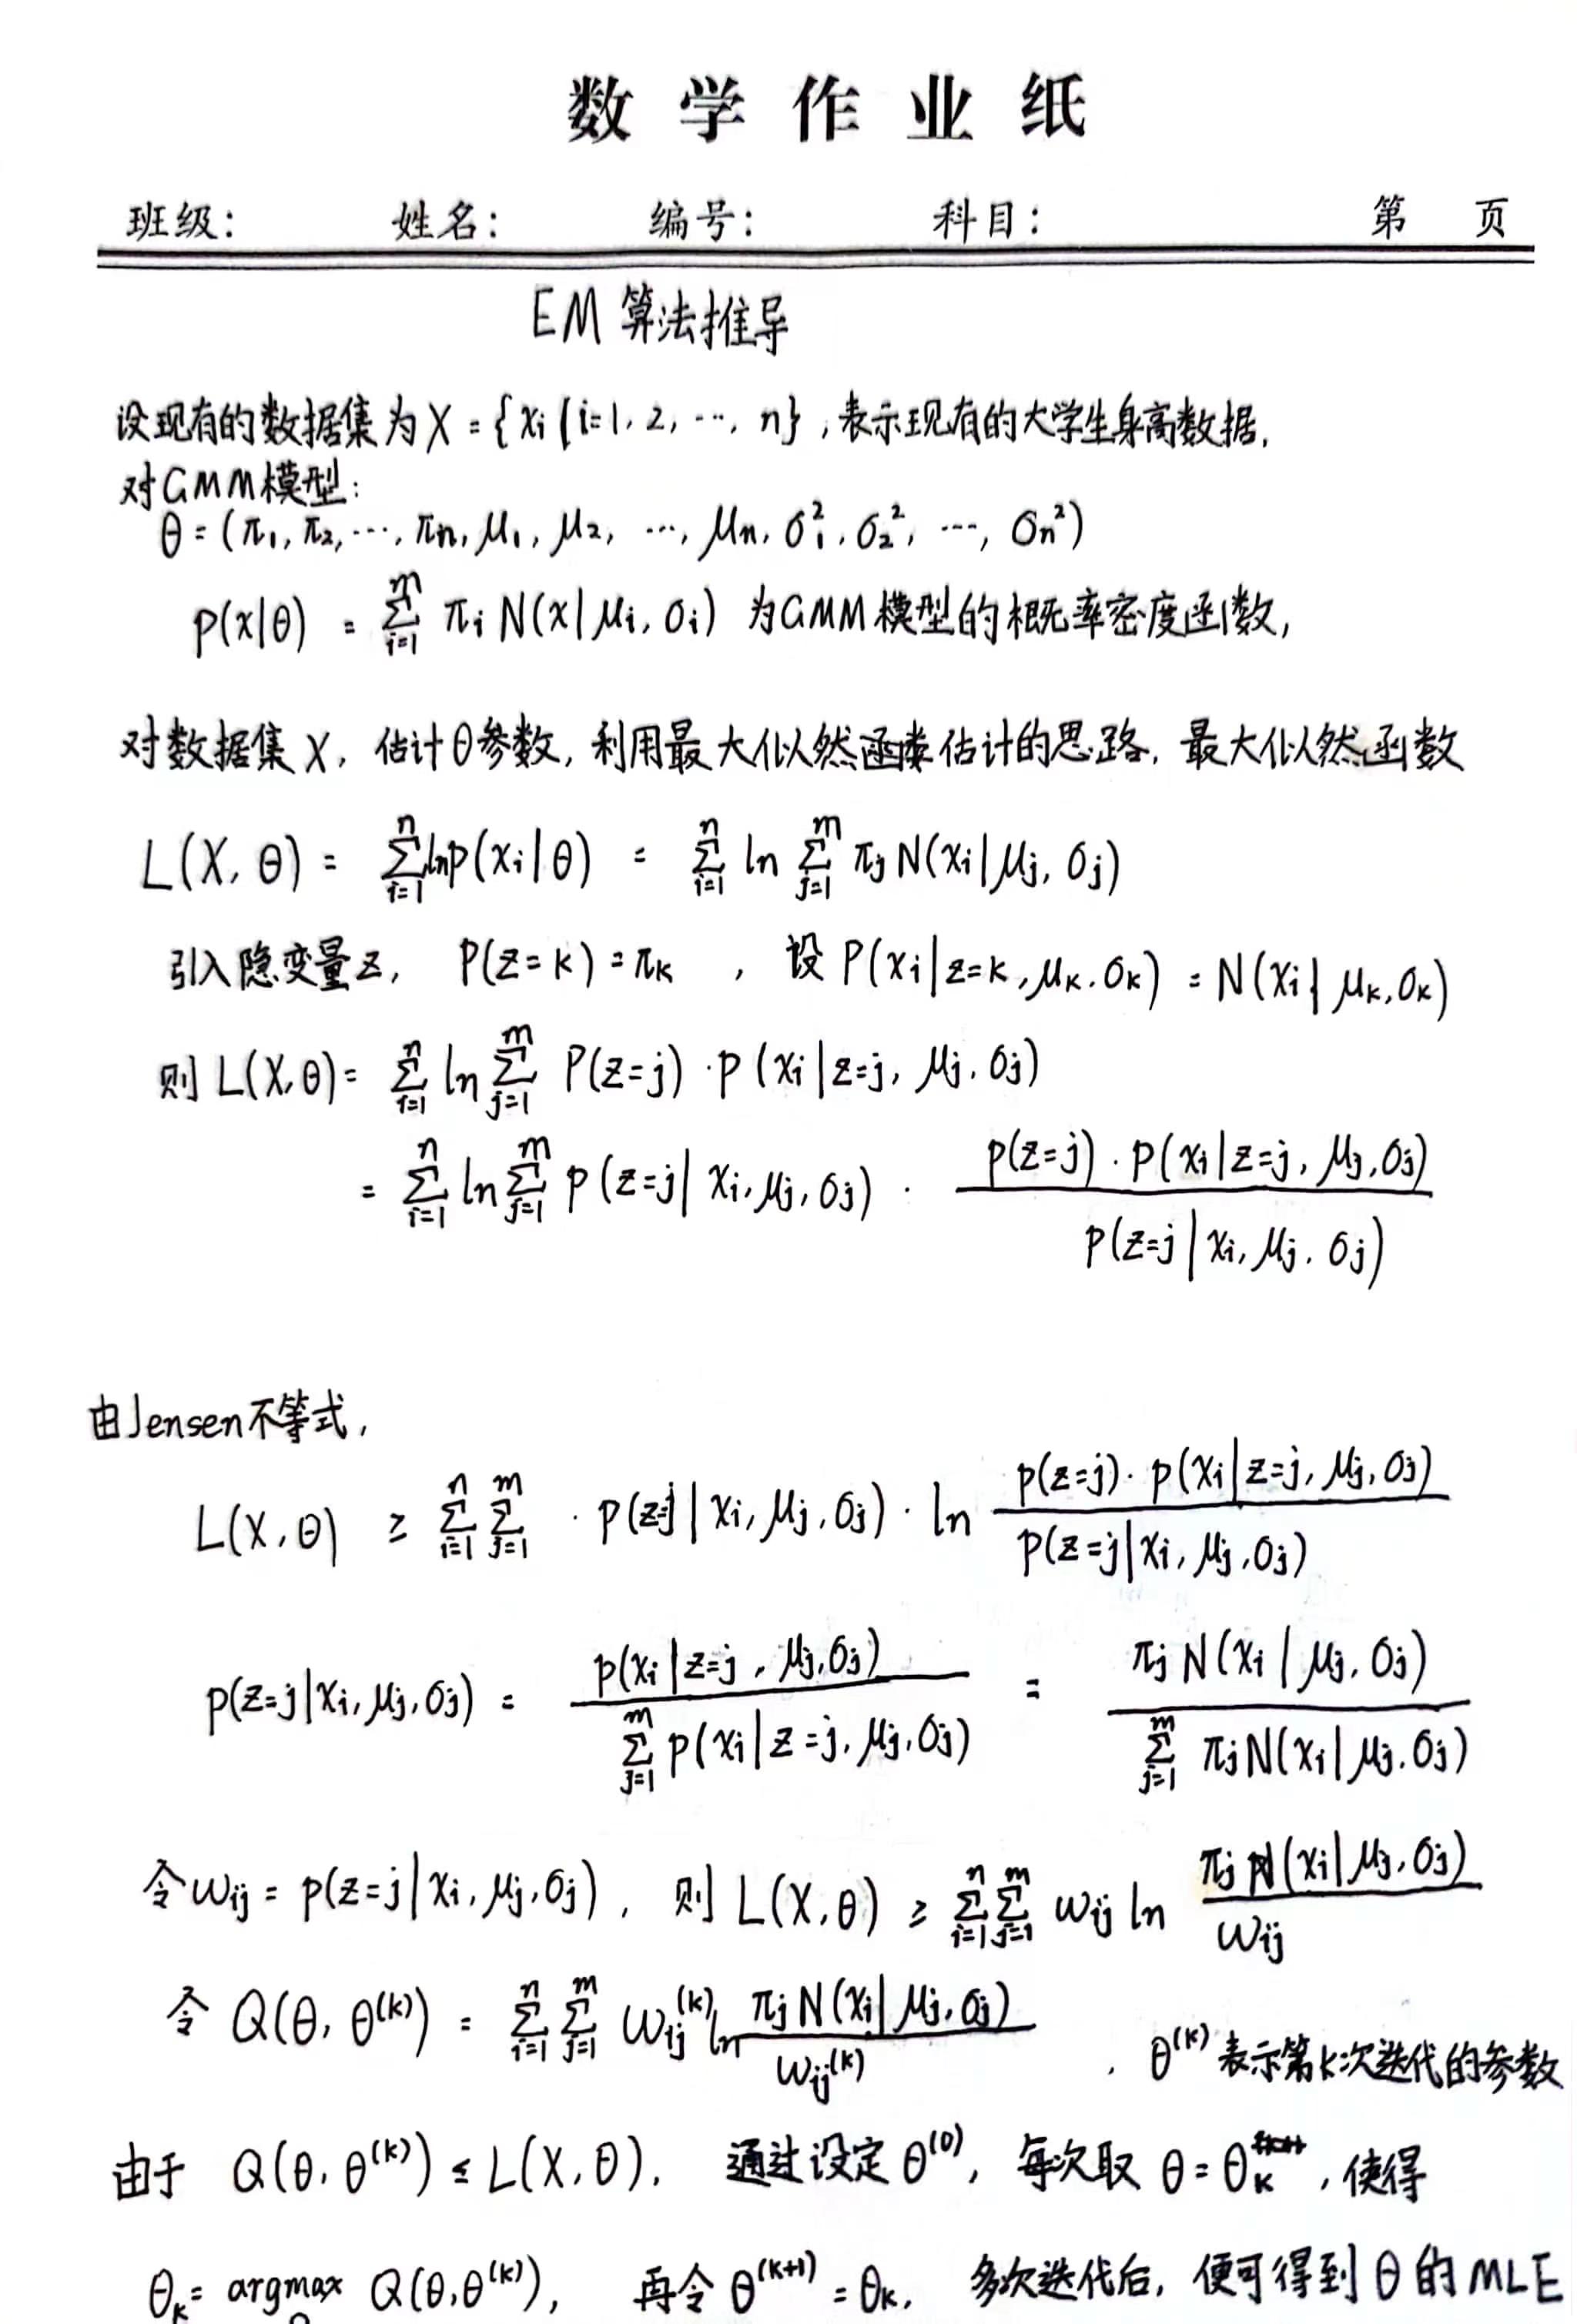 数学作业纸
班级: 姓名: 编号: 科目: 第 页
EM 算法推导
设现有的数据集为 X = {xi | i=1, 2, …, n}, 表示现有的大学生身高数据,
对GMM模型:
θ = (π₁, π₂, …, πn, μ₁, μ₂, …, μn, σ₁², σ₂², …, σn²)
p(x|θ) = ∑_{i=1}^{m} πi N(x|μi, σi) 为GMM模型的概率密度函数,
对数据集X, 估计θ参数, 利用最大似然函数估计的思路, 最大似然函数
L(X, θ) = ∑_{i=1}^{n} ln p(xi|θ) = ∑_{i=1}^{n} ln ∑_{j=1}^{m} πj N(xi|μj, σj)
引入隐变量z, P(z=k) = πk , 设 P(xi|z=k, μk, σk) = N(xi|μk, σk)
则 L(X, θ) = ∑_{i=1}^{n} ln ∑_{j=1}^{m} P(z=j) · p(xi|z=j, μj, σj)
= ∑_{i=1}^{n} ln ∑_{j=1}^{m} p(z=j|xi, μj, σj) · \frac{p(z=j) · p(xi|z=j, μj, σj)}{p(z=j|xi, μj, σj)}
由Jensen不等式,
L(X, θ) ≥ ∑_{i=1}^{n} ∑_{j=1}^{m} · p(z=j|xi, μj, σj) · ln \frac{p(z=j) · p(xi|z=j, μj, σj)}{p(z=j|xi, μj, σj)}
p(z=j|xi, μj, σj) = \frac{p(xi|z=j, μj, σj)}{∑_{j=1}^{m} p(xi|z=j, μj, σj)} = \frac{πj N(xi|μj, σj)}{∑_{j=1}^{m} πj N(xi|μj, σj)}
令 ωij = p(z=j|xi, μj, σj), 则 L(X, θ) ≥ ∑_{i=1}^{n} ∑_{j=1}^{m} ωij ln \frac{πj N(xi|μj, σj)}{ωij}
令 Q(θ, θ^{(k)}) = ∑_{i=1}^{n} ∑_{j=1}^{m} ωij^{(k)} ln \frac{πj N(xi|μj, σj)}{ωij^{(k)}} , θ^{(k)} 表示第k次迭代的参数
由于 Q(θ, θ^{(k)}) ≤ L(X, θ), 通过设定 θ^{(0)}, 每次取 θ = θ_k , 使得
θ_k = argmax Q(θ, θ^{(k)}), 再令 θ^{(k+1)} = θ_k, 多次迭代后, 便可得到 θ 的 MLE